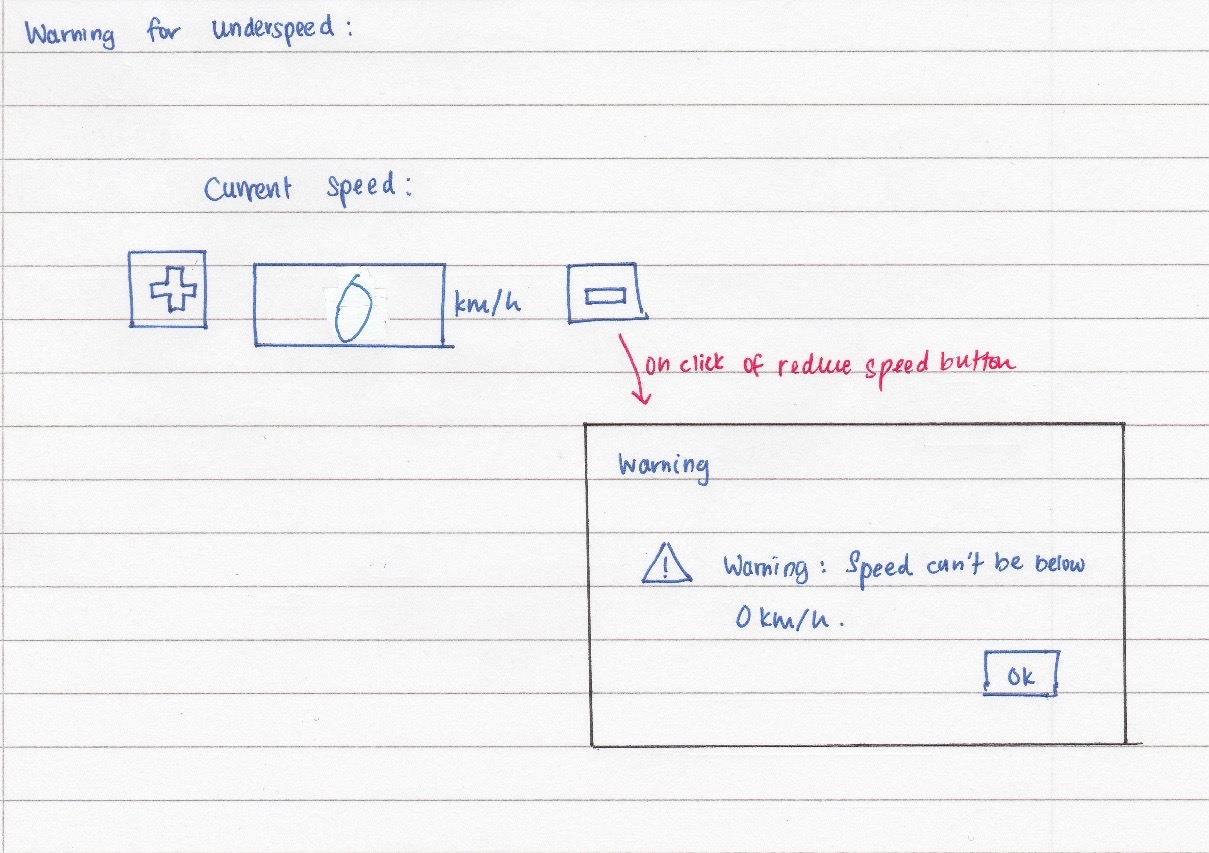 Warning for underspeed:
Current speed:
0 km/h
on click of reduce speed button
Warning
! Warning: Speed can't be below
0 km/h.
Ok